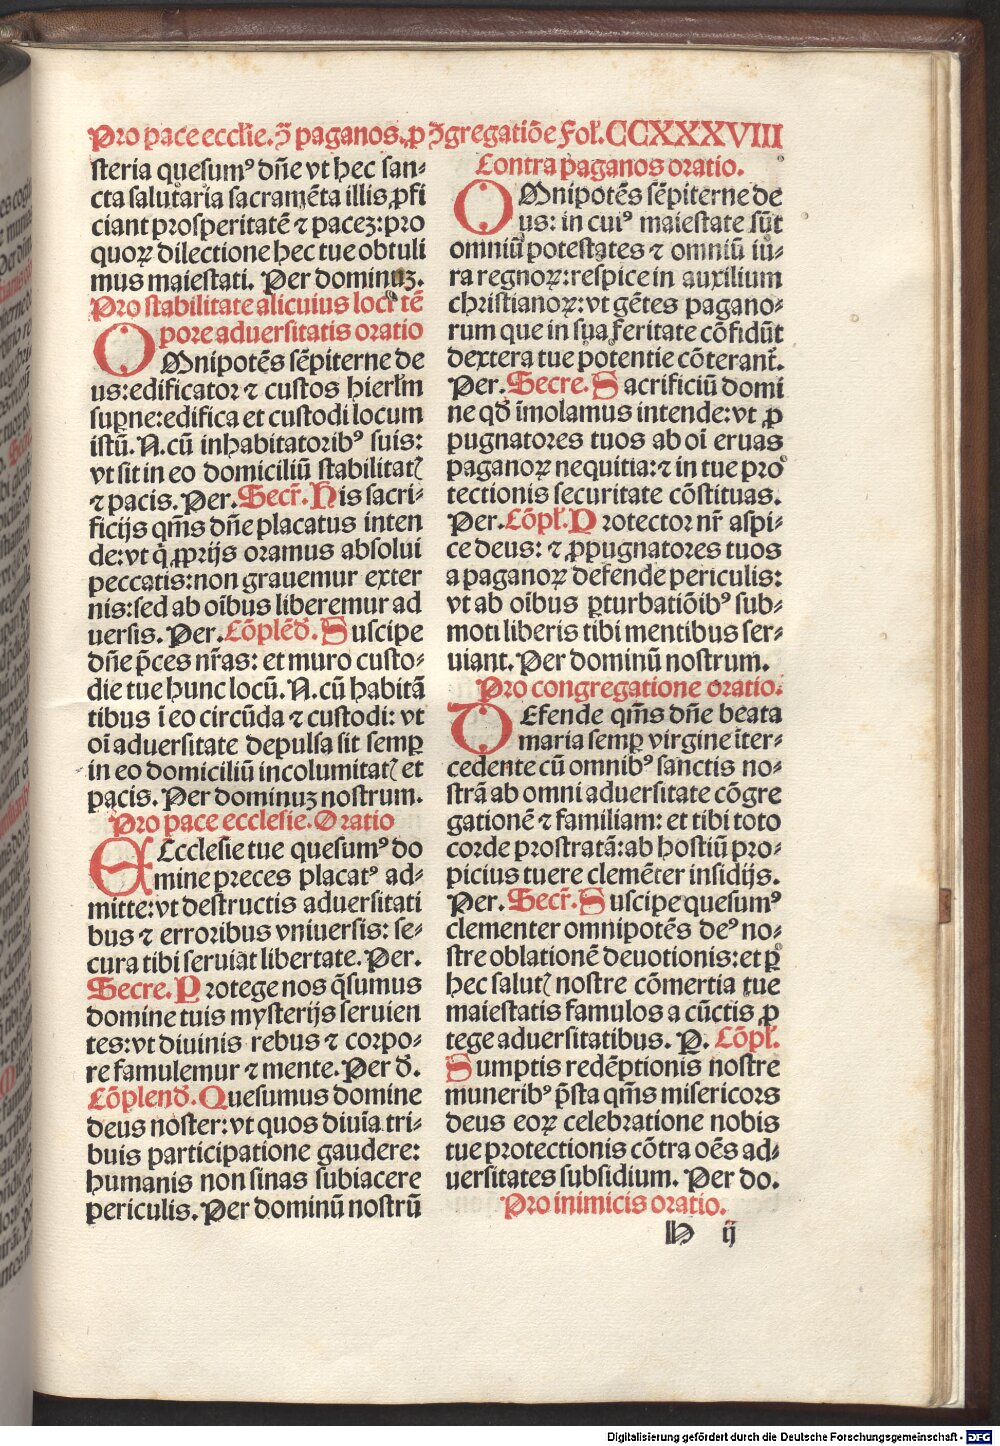 Pro pace eccl̄ie. ꝯ̄ paganos. ꝓ ꝯgregatiōe Fol. CCXXXVIII
steria quesumꝰ dn̄e vt hec san⸗
cta salutaria sacramēta illis ꝓfi
ciant prosperitatē ⁊ pacez: pro
quoꝝ dilectione hec tue obtuli
mus maiestati. Per dominuz.
Pro stabilitate alicuius loci tē
pore aduersitatis oratio
OMnipotēs sēpiterne de
us: edificator ⁊ custos hierl̄m
suꝑne: edifica et custodi locum
istū. N. cū inhabitatoribꝰ suis:
vt sit in eo domiciliū stabilitatꝭ
⁊ pacis. Per. Secr̄. His sacri⸗
ficijs qm̄s dn̄e placatus inten
de: vt q̄ ꝓprijs oramus absolui
peccatis: non grauemur exter
nis: sed ab oībus liberemur ad
uersis. Per. Cōplēd̄. Suscipe
dn̄e p̄ces nr̄as: et muro custo⸗
die tue hunc locū. N. cū habitā
tibus ī eo circūda ⁊ custodi: vt
oī aduersitate depulsa sit semꝑ
in eo domiciliū incolumitatꝭ et
pacis. Per dominuz nostrum.
Pro pace ecclesie. Oratio
ECclesie tue quesumꝰ do
mine preces placatꝰ ad⸗
mitte: vt destructis aduersitati
bus ⁊ erroribus vniuersis: se⸗
cura tibi seruiāt libertate. Per.
Secre. Protege nos q̄sumus
domine tuis mysterijs seruien
tes: vt diuinis rebus ⁊ corpo⸗
re famulemur ⁊ mente. Per d̄.
Cōplend̄. Quesumus domine
deus noster: vt quos diuīa tri⸗
buis participatione gaudere:
humanis non sinas subiacere
periculis. Per dominū nostrū
Contra paganos oratio.
OMnipotēs sēpiterne de
us: in cuiꝰ maiestate sūt
omniū potestates ⁊ omniū iu⸗
ra regnoꝝ: respice in auxilium
christianoꝝ: vt gētes pagano⸗
rum que in sua feritate cōfidūt
dextera tue potentie cōterant̄.
Per. Secre. Sacrificiū domi
ne qd̄ īmolamus intende: vt ꝓ
pugnatores tuos ab oī eruas
paganoꝝ nequitia: ⁊ in tue pro
tectionis securitate cōstituas.
Per. Cōpl̄. Protector nr̄ aspi⸗
ce deus: ⁊ ꝓpugnatores tuos
a paganoꝝ defende periculis:
vt ab oībus ꝑturbatiōibꝰ sub⸗
moti liberis tibi mentibus ser⸗
uiant. Per dominū nostrum.
Pro congregatione oratio.
DEfende qm̄s dn̄e beata
maria semꝑ virgine īter⸗
cedente cū omnibꝰ sanctis no⸗
strā ab omni aduersitate cōgre
gationē ⁊ familiam: et tibi toto
corde prostratā: ab hostiū pro⸗
picius tuere clemēter insidijs.
Per. Secr̄. Suscipe quesumꝰ
clementer omnipotēs deꝰ no⸗
stre oblationē deuotionis: et ꝑ
hec salutꝭ nostre cōmertia tue
maiestatis famulos a cūctis ꝓ
tege aduersitatibus. P. Cōpl̄.
Sumptis redēptionis nostre
muneribꝰ p̄sta qm̄s misericors
deus eoꝝ celebratione nobis
tue protectionis cōtra oēs ad⸗
uersitates subsidium. Per do.
Pro inimicis oratio.
H ij
Digitalisierung gefördert durch die Deutsche Forschungsgemeinschaft - DFG